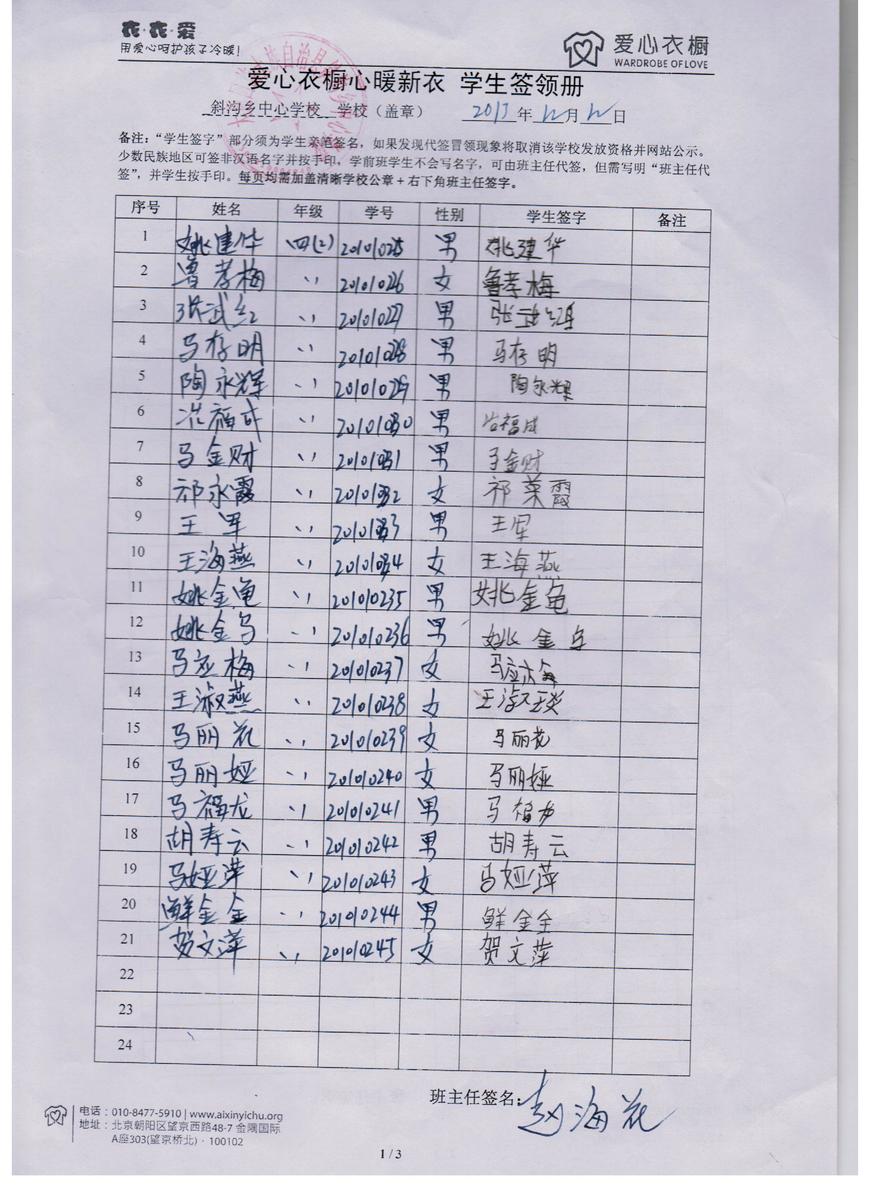 衣·衣·爱
用爱心呵护孩子冷暖!
爱心衣橱
WARDROBE OF LOVE
爱心衣橱心暖新衣 学生签领册
斜沟乡中心学校 学校(盖章) 2013年12月12日
备注:“学生签字”部分须为学生亲笔签名,如果发现代签冒领现象将取消该学校发放资格并网站公示。
少数民族地区可签非汉语名字并按手印,学前班学生不会写名字,可由班主任代签,但需写明“班主任代
签”,并学生按手印。每页均需加盖清晰学校公章+右下角班主任签字。
序号 姓名 年级 学号 性别 学生签字 备注
1 姚建华 四(2) 20101025 男 姚建华
2 鲁孝梅 〃 20101026 女 鲁孝梅
3 张武红 〃 20101027 男
4 马存明 〃 20101028 男 马存明
5 陶永辉 〃 20101029 男 陶永辉
6 福成 〃 男 福成
7 马金财 〃 男 马金财
8 祁永霞 〃 女 祁 霞
9 王军 〃 男 王军
10 王海燕 〃 女 王海燕
11 姚金龟 〃 201010235 男 姚金龟
12 姚金乌 〃 201010236 男 姚金乌
13 马 梅 〃 201010237 女
14 王淑燕 〃 201010238 女 王淑
15 马丽花 〃 201010239 女 马丽花
16 马丽娅 〃 201010240 女 马丽娅
17 马福龙 〃 201010241 男 马福龙
18 胡寿云 〃 201010242 男 胡寿云
19 马娅萍 〃 201010243 女 马娅萍
20 鲜金全 〃 201010244 男 鲜金全
21 贺文萍 〃 201010245 女 贺文萍
22
23
24
班主任签名:赵海花
电话:010-8477-5910 | www.aixinyichu.org
地址:北京朝阳区望京西路48-7 金隅国际
A座303(望京桥北)·100102
1 / 3